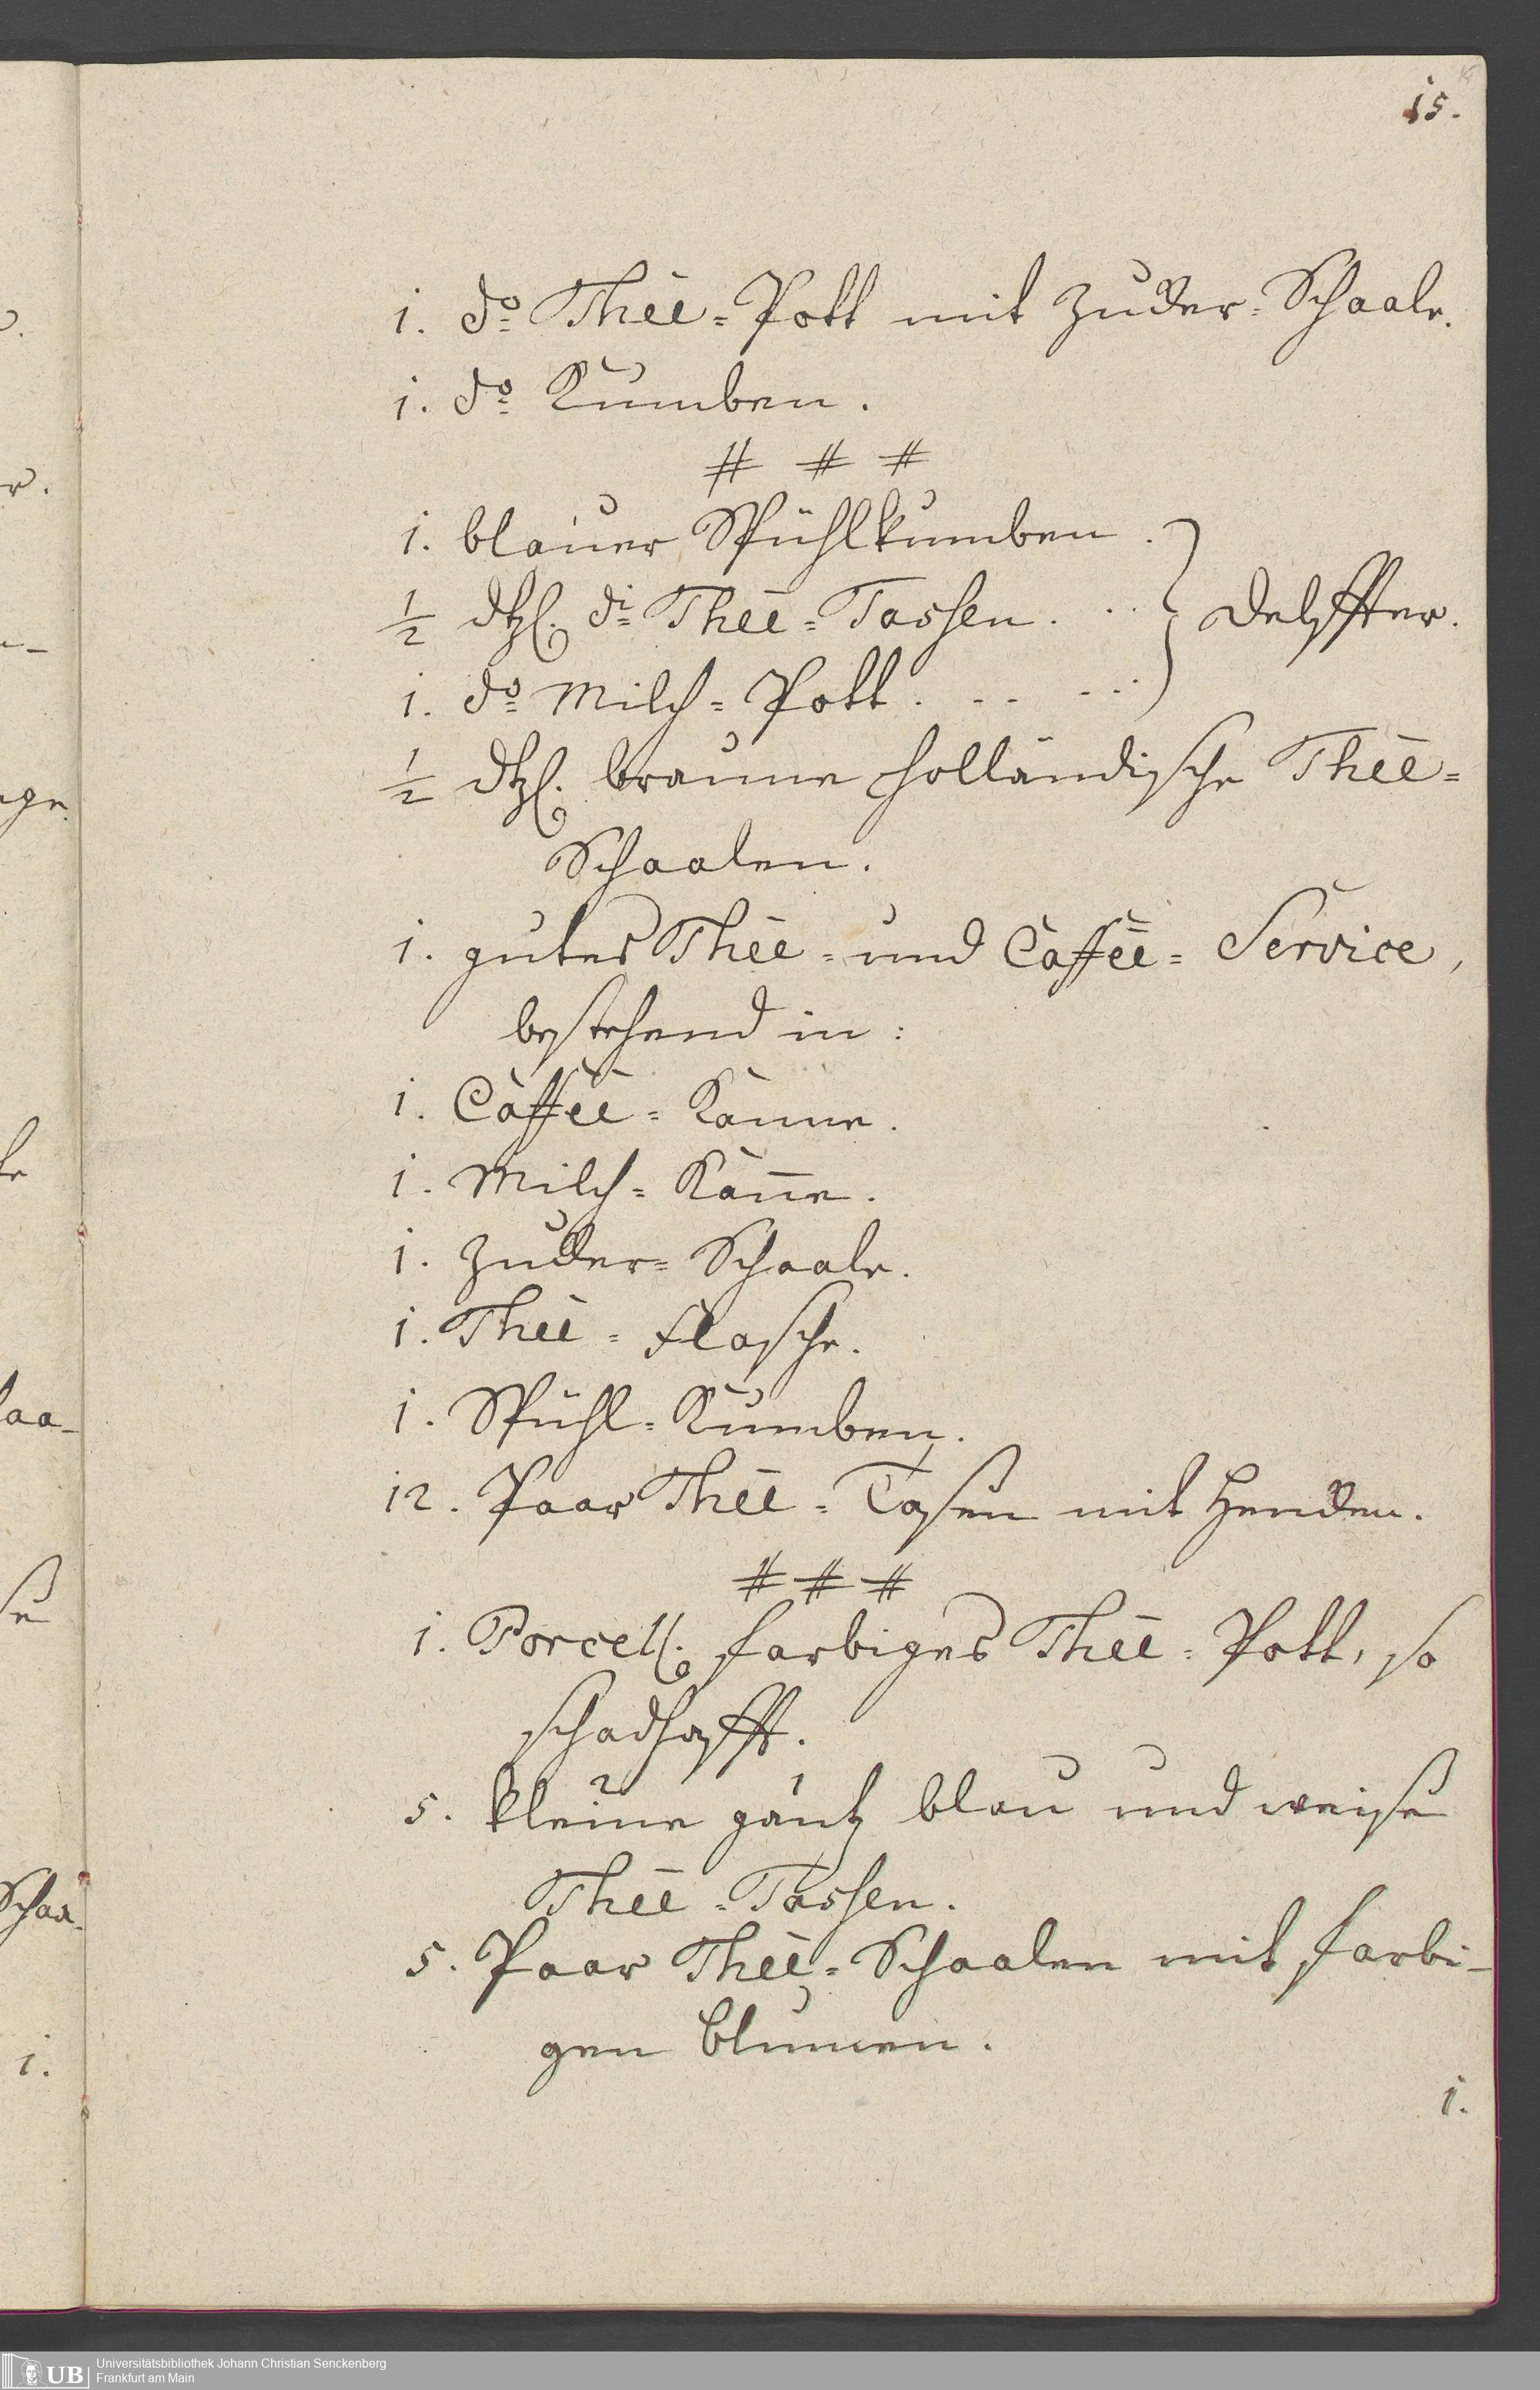 15.
1. do Thee=Pott mit Zucker=Schaale.
1. do Kumben.
# # #
1. blauer Spühlkumben.
½ dtz. di Thee=Tassen. . . Delffter.
1. do Milch=Pott. . . . . .
½ dtz. braune holländische Thee=
Schaalen.
1. gutes Thee= und Caffée=Service,
bestehend in:
1. Caffée=Kanne.
1. Milch=Kan̄e.
1. Zucker=Schaale.
1. Thee=Flasche.
1. Spühl=Kumben.
12. Paar Thee=Taßen mit Hencken.
# # #
1. Porcell. farbiges Thee=Pott, so
schadhafft.
5. kleine gantz blau und weiße
Thee=Tassen.
5. Paar Thee=Schaalen mit farbi-
gen Blumen.
1.
Universitätsbibliothek Johann Christian Senckenberg
Frankfurt am Main
UB